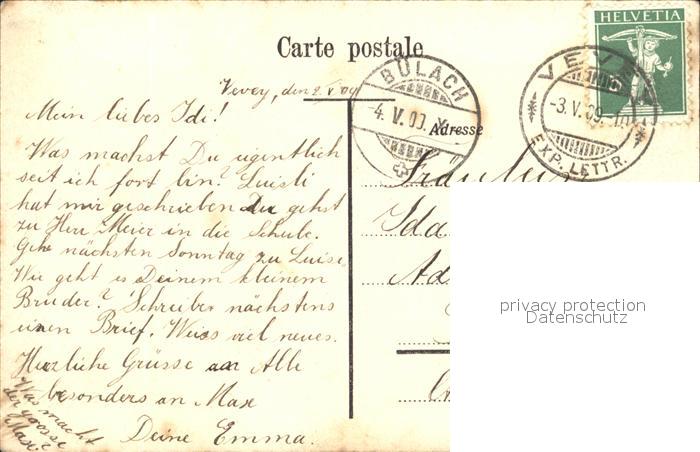 Carte postale
HELVETIA
BÜLACH
-4. V. 09. X
VEVEY
-3. V. 09.-10
EXP. LETTR.
Adresse
Vevey, den 2. V. 09
Mein liebes Idi!
Was machst Du eigentlich
seit ich fort bin? Luisli
hat mir geschrieben Du gehst
zu Herr Meier in die Schule.
Gehe nächsten Sonntag zu Luise.
Wie geht es Deinem kleinem
Bruder? Schreibe nächstens
einen Brief. Weiss viel neues.
Herzliche Grüsse an Alle
besonders an Max
Deine Emma.
Was macht
der grosse
Max?
Fräulein
Ida
privacy protection
Datenschutz